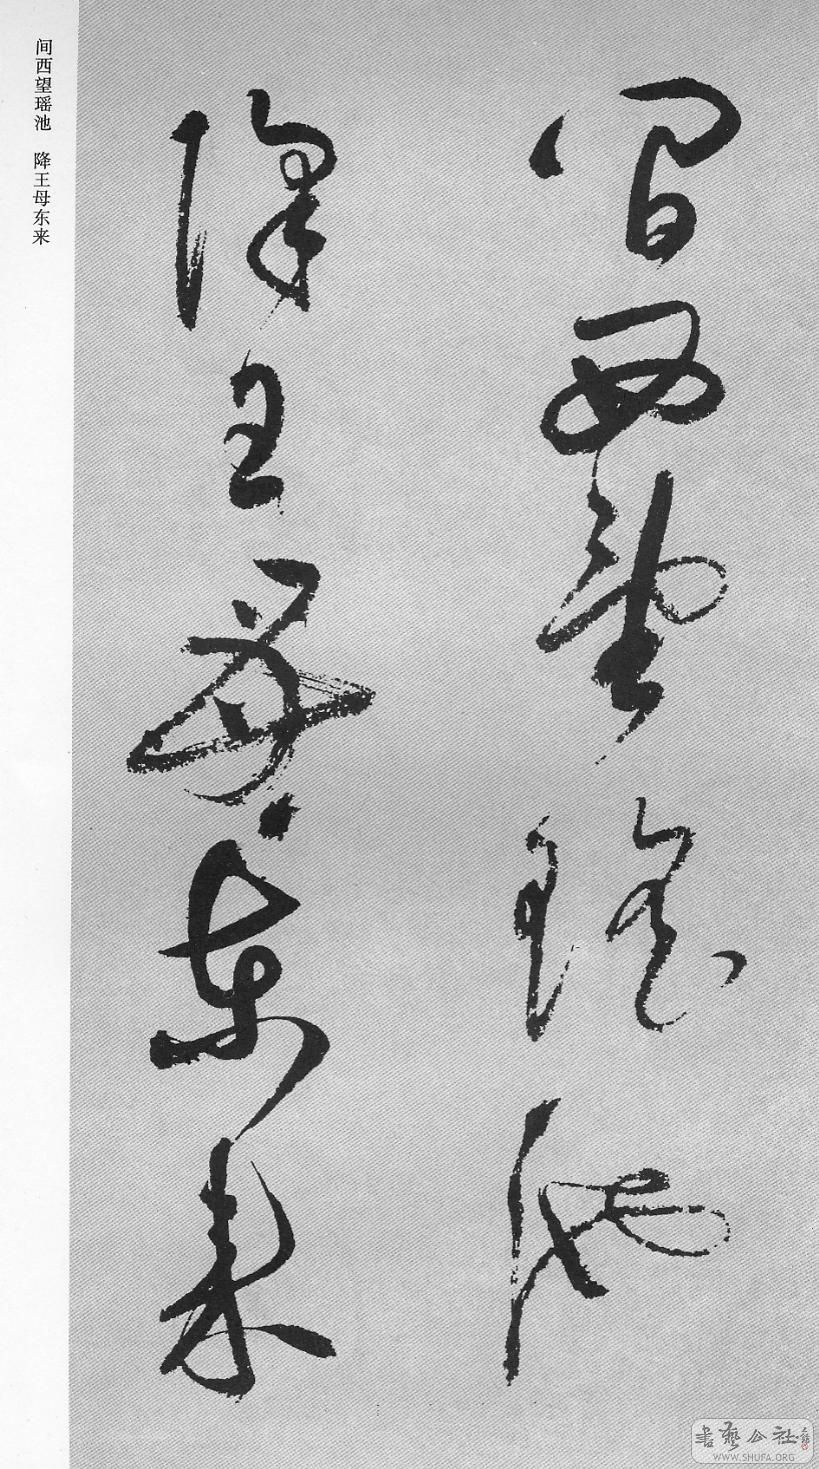 間西望瑤池
降王母東来
间西望瑶池 降王母东来
書藝公社
WWW.SHUFA.ORG